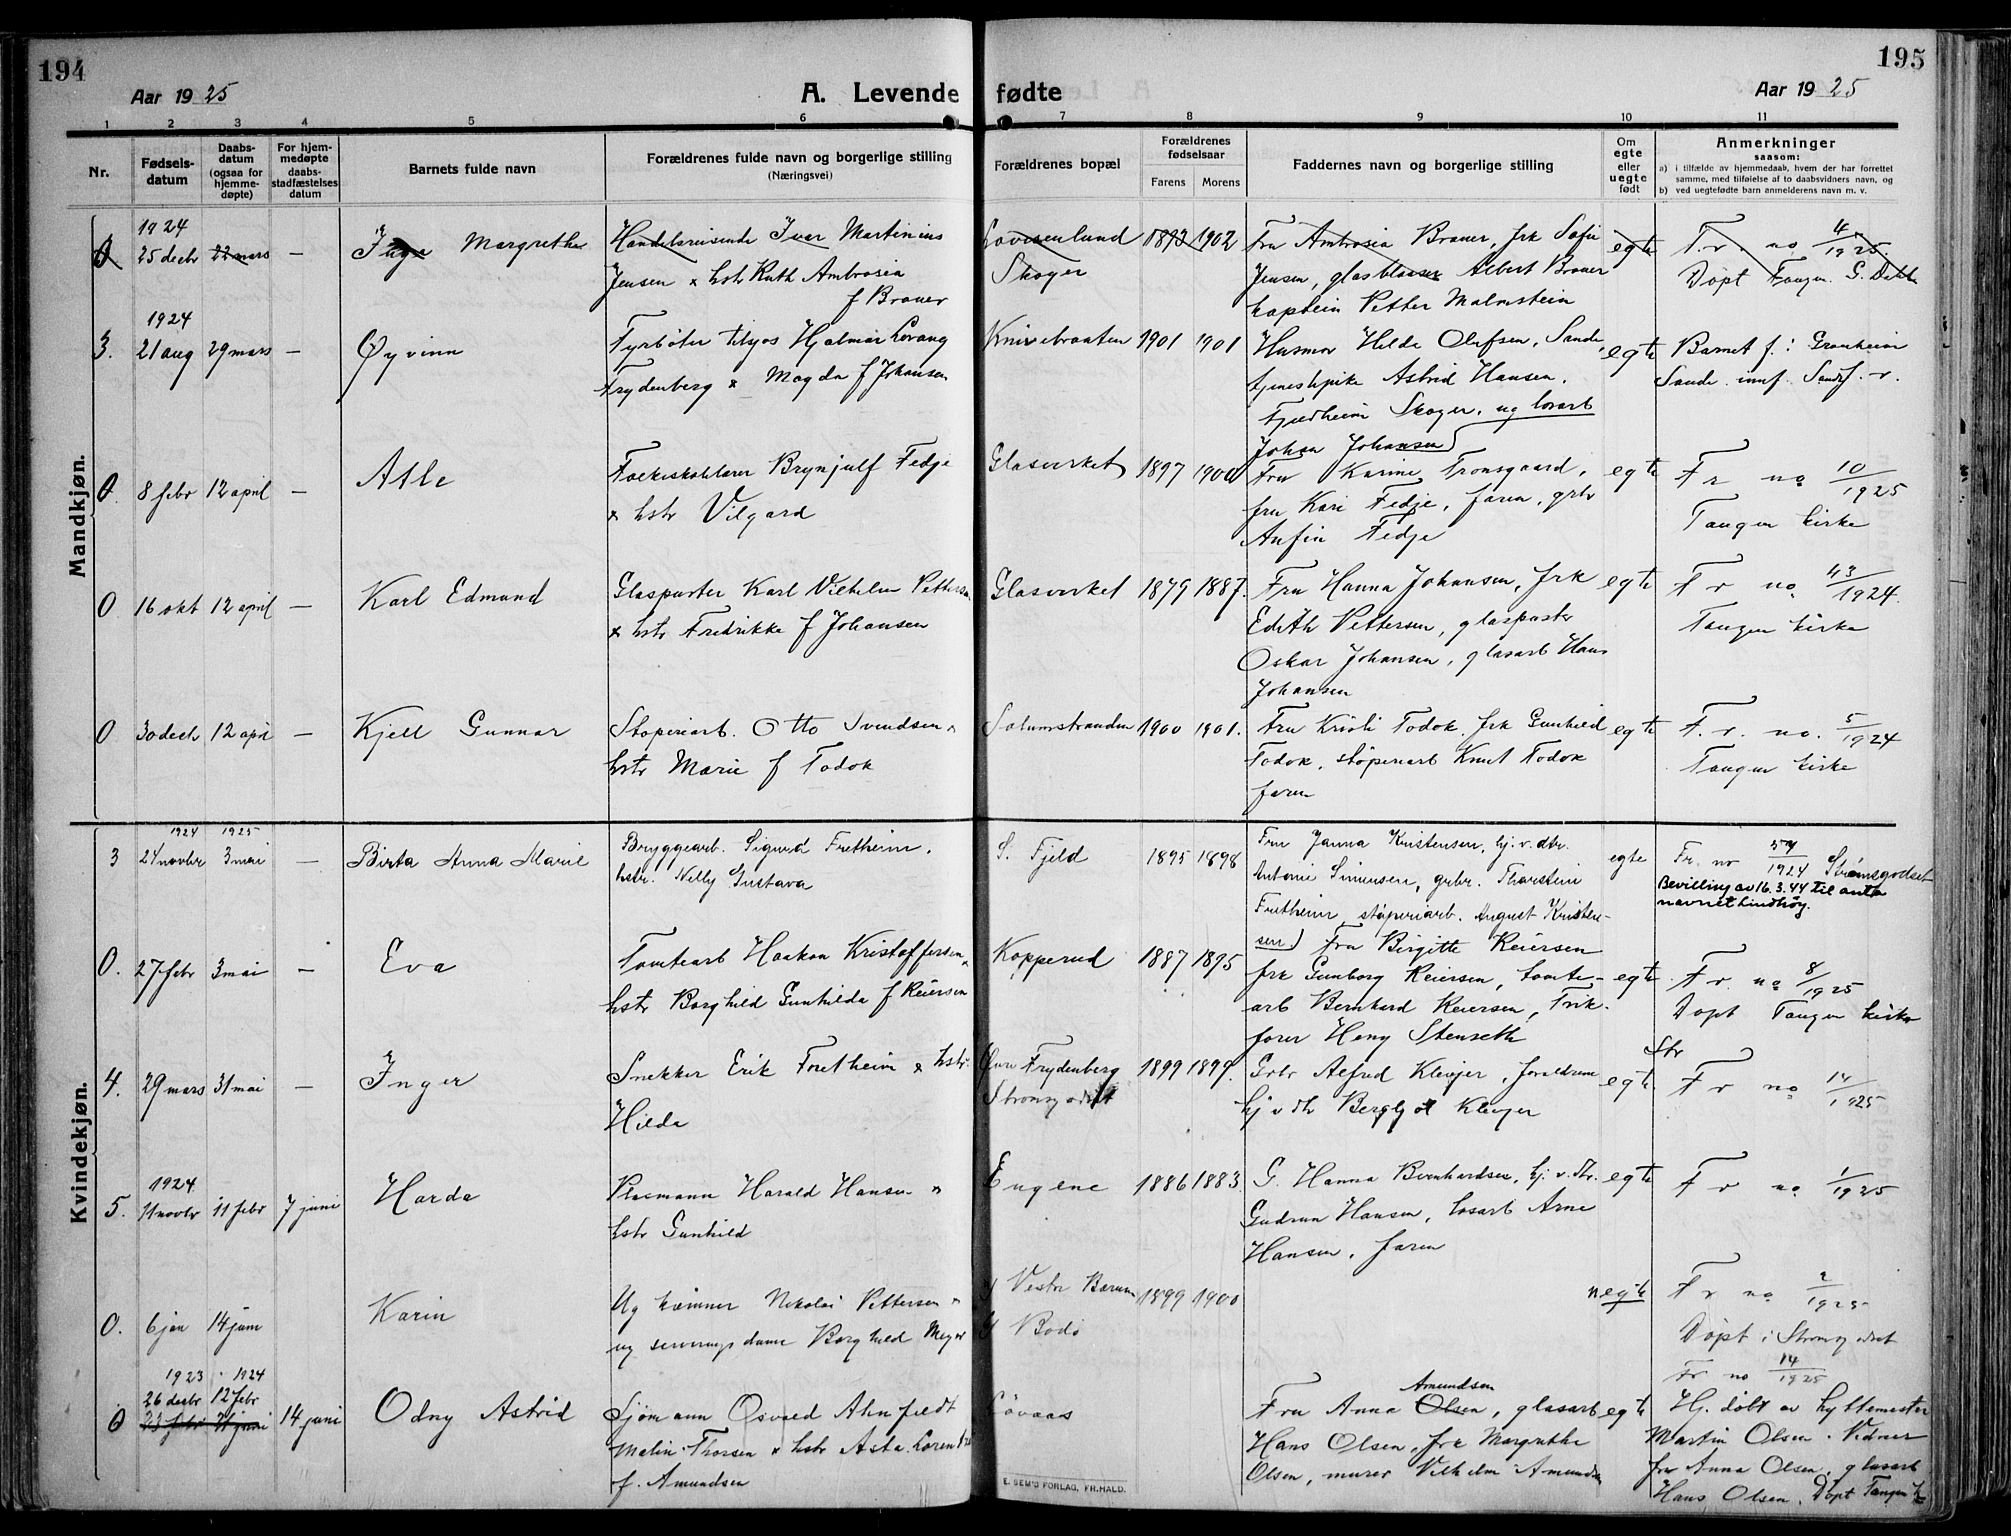 194
195
Aar 1925
A. Levende fødte
Aar 1925
1 2 3 4 5 6 7 8 9 10 11
Nr.
Fødsels-
datum
Daabs-
datum
(ogsaa for
hjemme-
døpte)
For hjem-
medøpte
daabs-
stadfæstelses
datum
Barnets fulde navn
Forældrenes fulde navn og borgerlige stilling
(Næringsvei)
Forældrenes bopæl
Forældrenes
fødselsaar
Farens Morens
Faddernes navn og borgerlige stilling
Om
egte
eller
uegte
født
Anmerkninger
saasom:
a) i tilfælde av hjemmedaab, hvem der har forrettet
samme, med tilføielse af to daabsvidners navn, og
b) ved uegtefødte barn anmelderens navn m. v.
Mandkjøn.
1924
0 25 decbr 22 mars — Inga Margrethe
Handelsreisende Ivar Martinius
Jensen & hstr Ruth Ambrosia
f Brauer
Lovisenlund
Skoger
1893 1902
Fru Ambrosia Brauer, frk Sofie
Jensen, glasblaaser Albert Brauer
kaptein Petter Malmstein
egte
F. r. no 4/1925.
Døpt Tangen. G. Dahl
1924
3. 21 aug 29 mars — Øyvinn
Fyrbøter tilsjøs Hjalmar Lovang
Frydenberg & Magda f Johansen
Knivebraaten 1901 1901
Husmor Hilda Olefsen, Sande,
tjenestepike Astrid Hansen,
Fjeldheim Skoger, ug losarb
Johan Johansen
egte
Barnet f. i Granheim
Sande. innf. Sande f. r.
0. 8 febr 12 april — Atle
Folkeskolelærer Brynjulf Fedje
& hstr Vilgard
Glasverket 1897 1900
Fru Karine Tronsgaard,
fru Kari Fedje, faren, grbr
Anfin Fedje
egte
F r no 10/1925
Tangen kirke
0 16 okt 12 april — Karl Edmund
Glaspuster Karl Vilhelm Pettersen
& hstr Fredrikke f Johansen
Glasverket 1879 1887.
Fru Hanna Johansen, frk
Edith Pettersen, glaspuster
Oskar Johansen, glasarb Hans
Johansen
egte
F r no 43/1924.
Tangen kirke
0 30 decbr 12 april — Kjell Gunnar
Støperiarb. Otto Svendsen &
hstr Marie f Todok
Solumstranden 1900 1901.
Fru Kristi Todok, frk Gunhild
Todok, støperiarb Knut Todok
faren
egte
F. r. no. 5/1924
Tangen kirke
Kvindekjøn.
1924 1925
3 24 novbr 3 mai — Birta Anna Marie
Bryggearb. Sigurd Fretheim,
hstr. Nelly Gustava
S. Fjeld 1895 1898
Fru Janna Kristensen, hj. v. dtr.
Antonie Simensen, grbr. Thorstein
Fretheim, støperiarb. August Kristen-
sen
egte
Fr. no 59/1924 Strømsgodset
Bevilling av 16.3.44 til anta
navnet Lindhøy.
0. 27 febr 3 mai — Eva
Tomtearb Haakon Kristoffersen &
hstr Borghild Gunhilda f Reiersen
Kopperud 1887 1895
Fru Birgitte Reiersen
frk Gunborg Reiersen, tomte-
arb Bernhard Reiersen, Trik-
forer Heny Stenseth
egte
F r. no 8/1925
Døpt Tangen kirke
4. 29 mars 31 mai — Inger
Snekker Erik Fretheim & hstr.
Hilda
Øvre Frydenberg
Strømsgodset
1899 1899.
Grbr Alfred Klevjer, foreldrene
hj v dtr Bergljot Klevjer
egte
Str
F r no 14/1925
1924
5. 11 novbr 11 febr 7 juni Harda
Plasmann Harald Hansen &
hstr Gunhild
Eugene 1886 1883
G. Hanna Bernhardsen, hj. v. dtr.
Gudrun Hansen, losarb Arne
Hansen, faren
egte
F r no 1/1925
0. 6 jan 14 juni Karin
Ug kemner Nikolai Pettersen &
ug serveringsdame Borghild Meyer
Vestre Bærum
Bodø
1899 1900
uegte
F r no 2/1925
Døpt i Strømsgodset
Fr no 14/1925
1923 1924
26 decbr 12 febr
0 23 febr 14 juni 14 juni Odny Astrid
Sjømann Osvald Ahnfeldt
Malin-Thorsen & hstr Asta Lorentze
f. Amundsen
Løvaas
Amundsen
Fru Anna Olsen, glasarb
Hans Olsen, frk Margrethe
Olsen, murer Vilhelm Amundsen
egte
Hj. døbt av hyttemester
Martin Olsen. Vidner
fru Anna Olsen, glasarb
Hans Olsen. Døpt Tangen k
E. SEM'S FORLAG, FR.HALD.